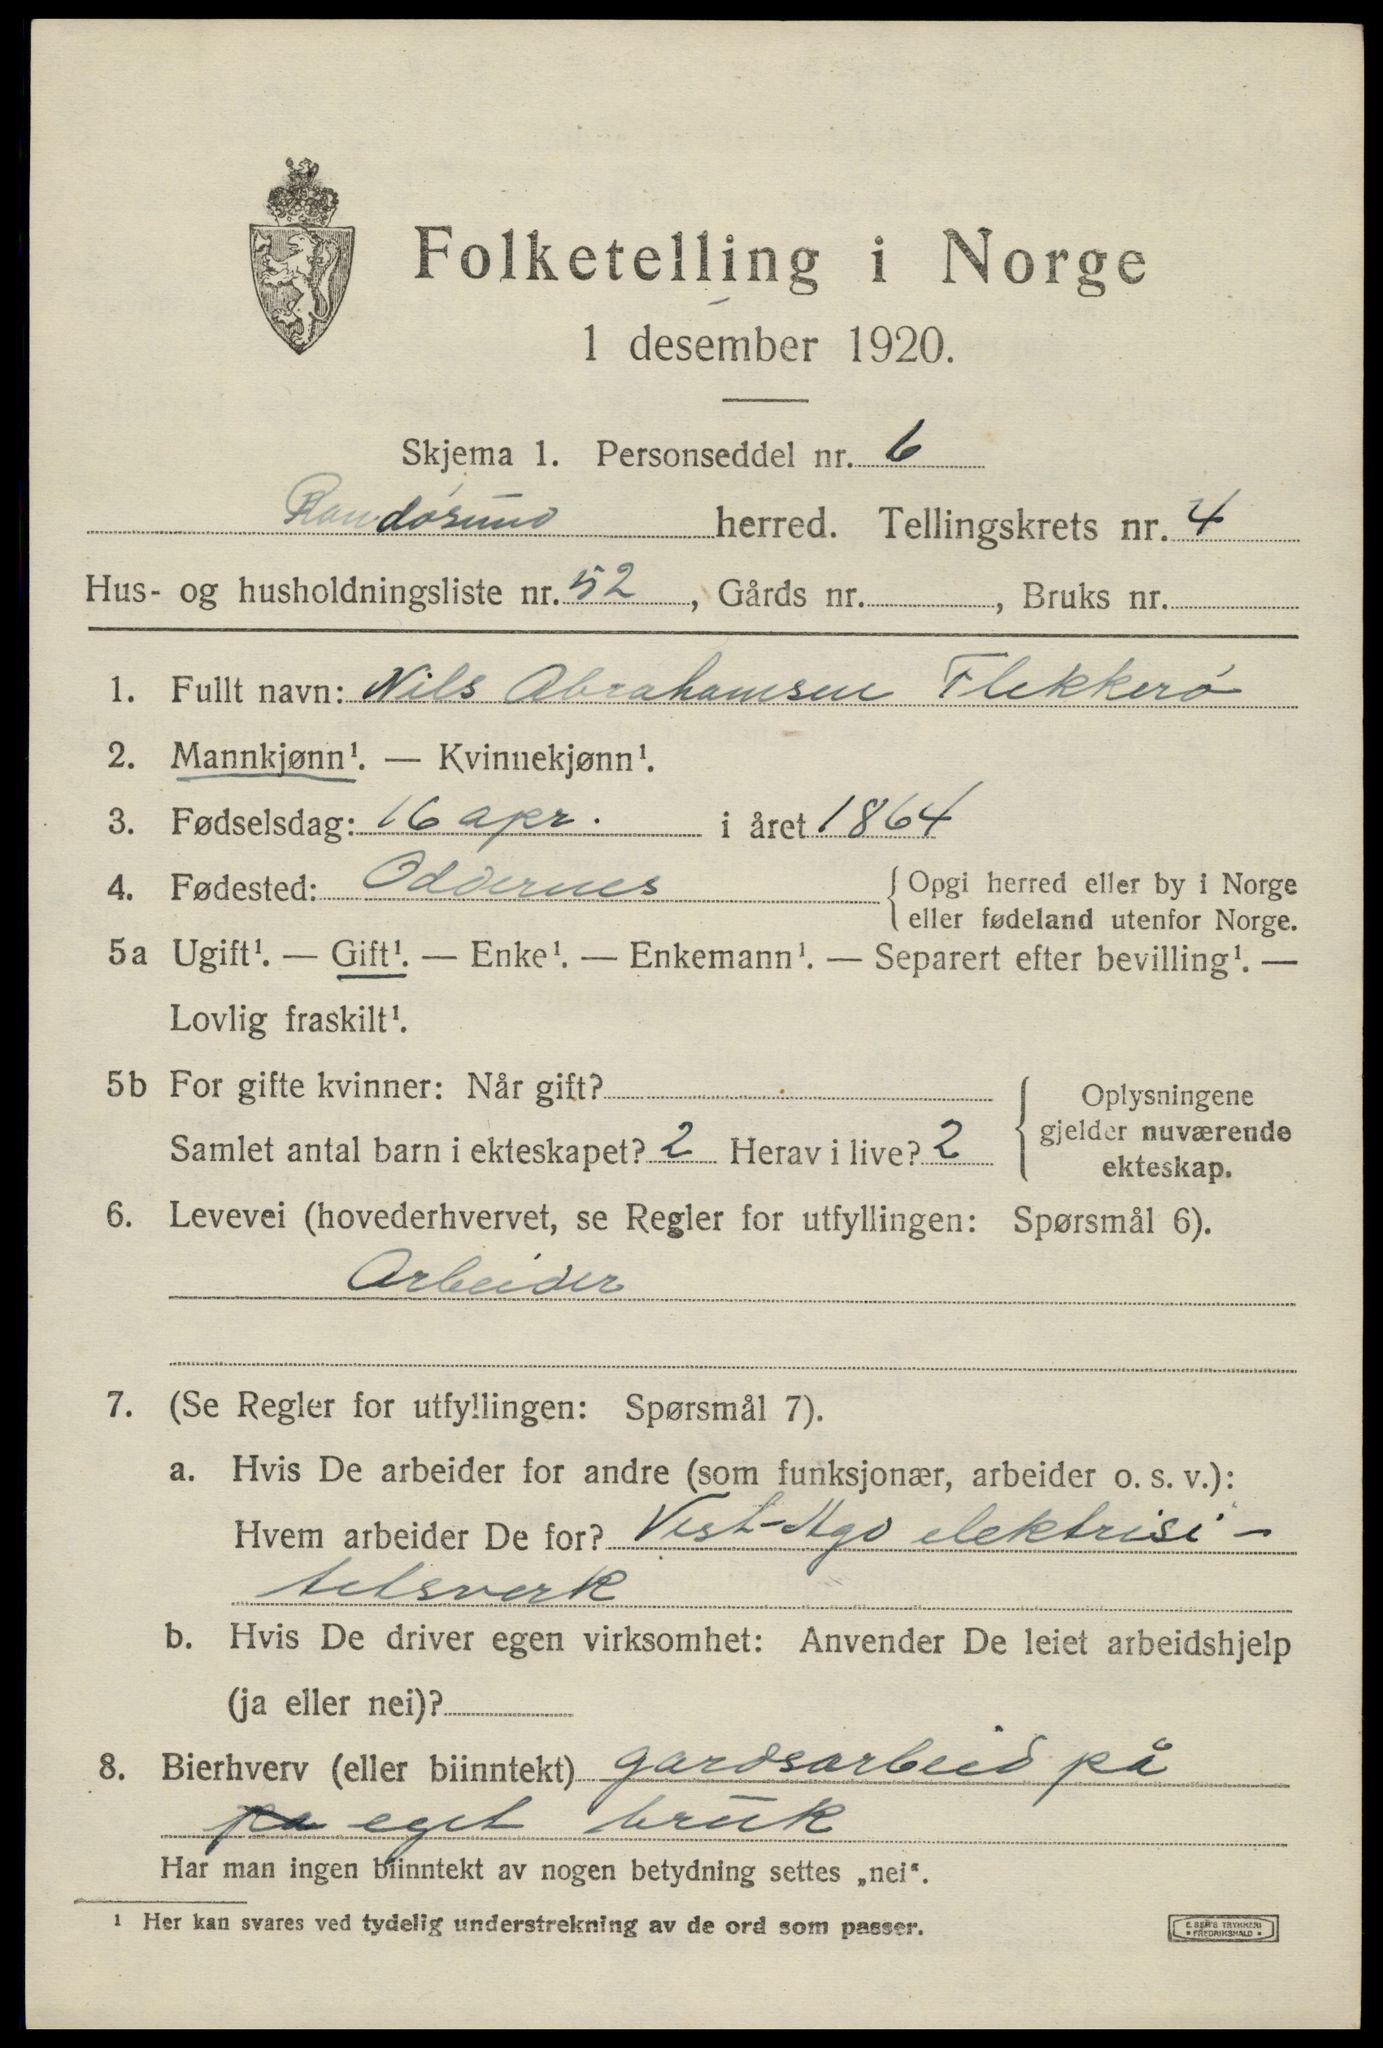 Folketelling i Norge
1 desember 1920.
Skjema 1. Personseddel nr. 6
Randøsund herred. Tellingskrets nr. 4
Hus- og husholdningsliste nr. 52, Gårds nr. , Bruks nr.
1. Fullt navn: Nils Abrahamsen Flekkerø
2. Mannkjønn¹. — Kvinnekjønn¹.
3. Fødselsdag: 16 apr. i året 1864
4. Fødested: Oddernes {Opgi herred eller by i Norge
eller fødeland utenfor Norge.
5a Ugift¹. — Gift¹. — Enke¹. — Enkemann¹. — Separert efter bevilling¹. —
Lovlig fraskilt¹.
5b For gifte kvinner: Når gift?
Samlet antal barn i ekteskapet? 2 Herav i live? 2
Oplysningene
gjelder nuværende
ekteskap.
6. Levevei (hovederhvervet, se Regler for utfyllingen: Spørsmål 6).
Arbeider
7. (Se Regler for utfyllingen: Spørsmål 7).
a. Hvis De arbeider for andre (som funksjonær, arbeider o. s. v.):
Hvem arbeider De for? Vest-Agd elektrisi-
tetsverk
b. Hvis De driver egen virksomhet: Anvender De leiet arbeidshjelp
(ja eller nei)?
8. Bierhverv (eller biinntekt) gardsarbeid på
pa eget bruk
Har man ingen biinntekt av nogen betydning settes „nei“.
¹ Her kan svares ved tydelig understrekning av de ord som passer.
E. SEM'S TRYKKERI
• FREDRIKSHALD •